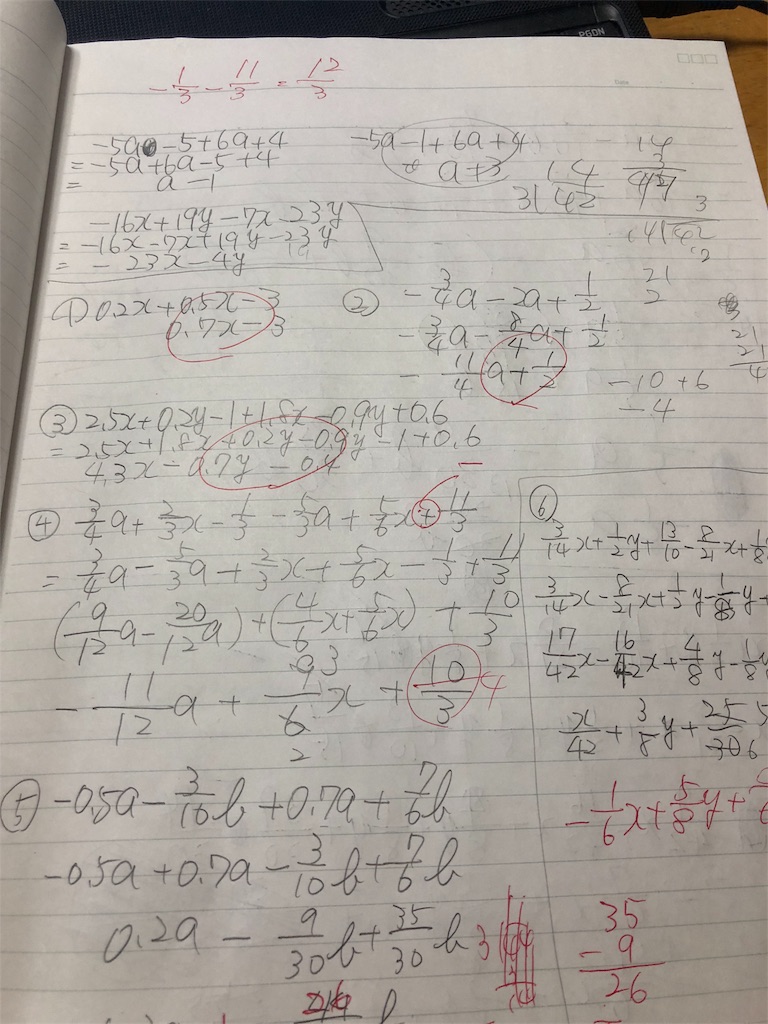 PGDN
- 1/3 - 11/3 = 12/3
-5a - 5 + 6a + 4
= -5a + 6a - 5 + 4
= a - 1
-5a - 1 + 6a + 4
a + 3
14
3) 42
14
3
3
14) 42
-16x + 19y - 7x - 23y
= -16x - 7x + 19y - 23y
= - 23x - 4y
① 0.2x + 0.5x - 3
0.7x - 3
② - 3/4 a - 2a + 1/2
- 3/4 a - 8/4 a + 1/2
- 11/4 a + 1/2
21
2
21
21
4
-10 + 6
-4
③ 2.5x + 0.2y - 1 + 1.8x - 0.9y + 0.6
= 2.5x + 1.8x + 0.2y - 0.9y - 1 + 0.6
4.3x - 0.7y - 0.4
④ 3/4 a + 2/3 x - 1/3 - 5/3 a + 5/6 x + 11/3
-
= 3/4 a - 5/3 a + 2/3 x + 5/6 x - 1/3 + 11/3
(9/12 a - 20/12 a) + (4/6 x + 5/6 x) + 10/3
- 11/12 a + 9/6 x + 10/3
3
2
4
⑤ -0.5a - 3/10 b + 0.7a + 7/6 b
-0.5a + 0.7a - 3/10 b + 7/6 b
0.2a - 9/30 b + 35/30 b
b
⑥
3/14 x + 1/2 y + 13/10 - 8/21 x + 1/8
3/14 x - 8/21 x + 1/2 y - 1/8 y +
17/42 x - 16/42 x + 4/8 y - 1/8 y
x/42 + 3/8 y + 25/30 5
6
- 1/6 x + 5/8 y +
35
- 9
26